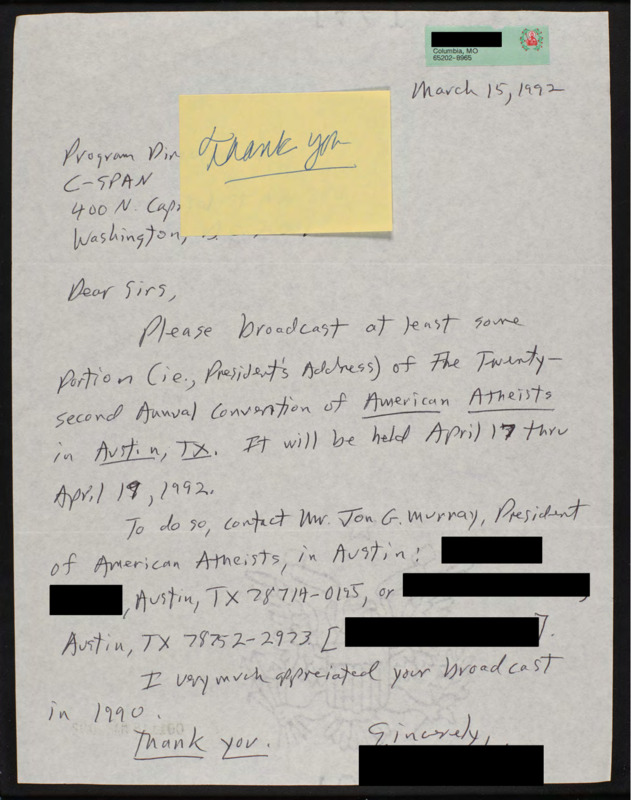 Columbia, MO
65202-8965
March 15, 1992
Thank you
Program Dir
C-SPAN
400 N. Cap
Washington,
Dear Sirs,
Please broadcast at least some
portion (ie., President's Address) of The Twenty-
second Annual Convention of American Atheists
in Austin, TX. It will be held April 17 thru
April 19, 1992.
To do so, contact Mr. Jon G. Murray, President
of American Atheists, in Austin:
, Austin, TX 78714-0195, or ,
Austin, TX 78752-2973 [ ].
I very much appreciated your broadcast
in 1990.
Thank you. Sincerely,